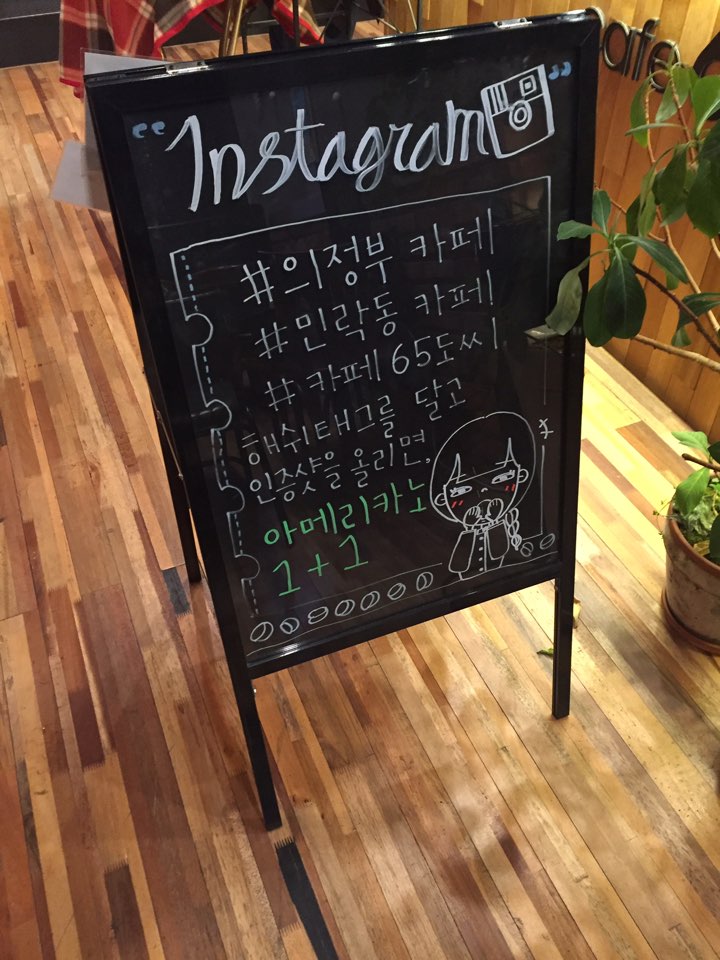 "Instagram"
#의정부 카페
#민락동 카페
#카페 65도씨
해쉬태그를 달고
인증샷을 올리면,
아메리카노
1+1
cafe